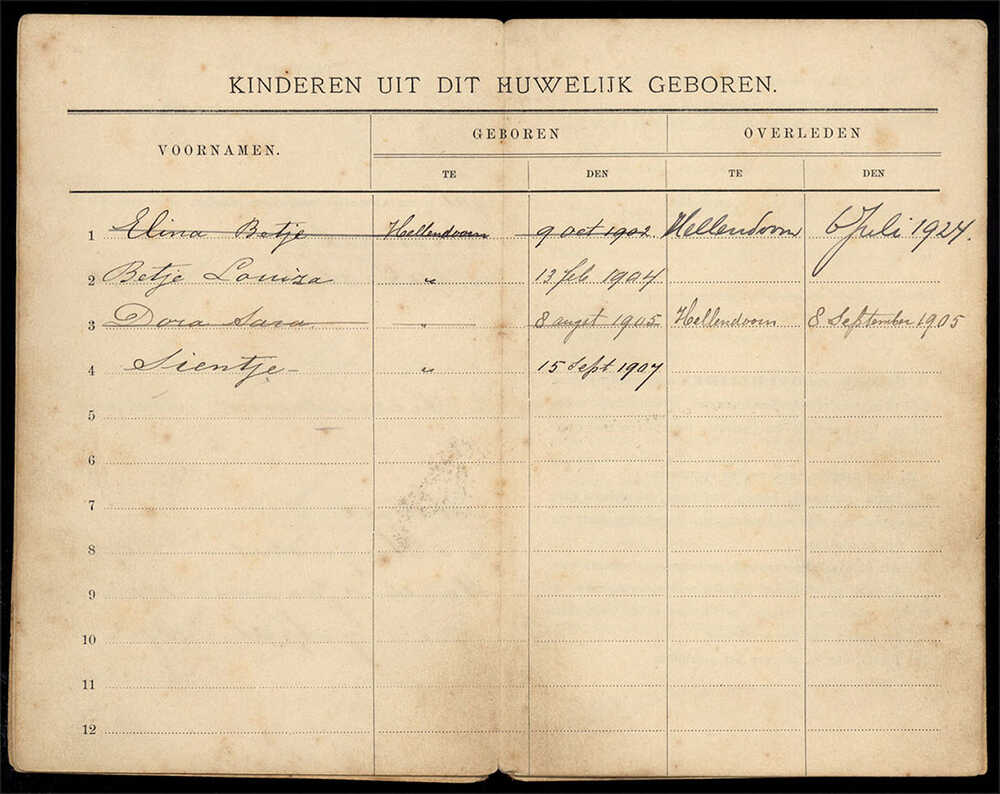 KINDEREN UIT DIT HUWELIJK GEBOREN.
VOORNAMEN. GEBOREN OVERLEDEN
TE DEN TE DEN
1 Elina Betje Hellendoorn 9 oct 1902 Hellendoorn 6 Juli 1924.
2 Betje Louiza " 13 feb 1904
3 Dora Sara " 8 augst 1905 Hellendoorn 8 September 1905
4 Sientje " 15 Sept 1907
5
6
7
8
9
10
11
12